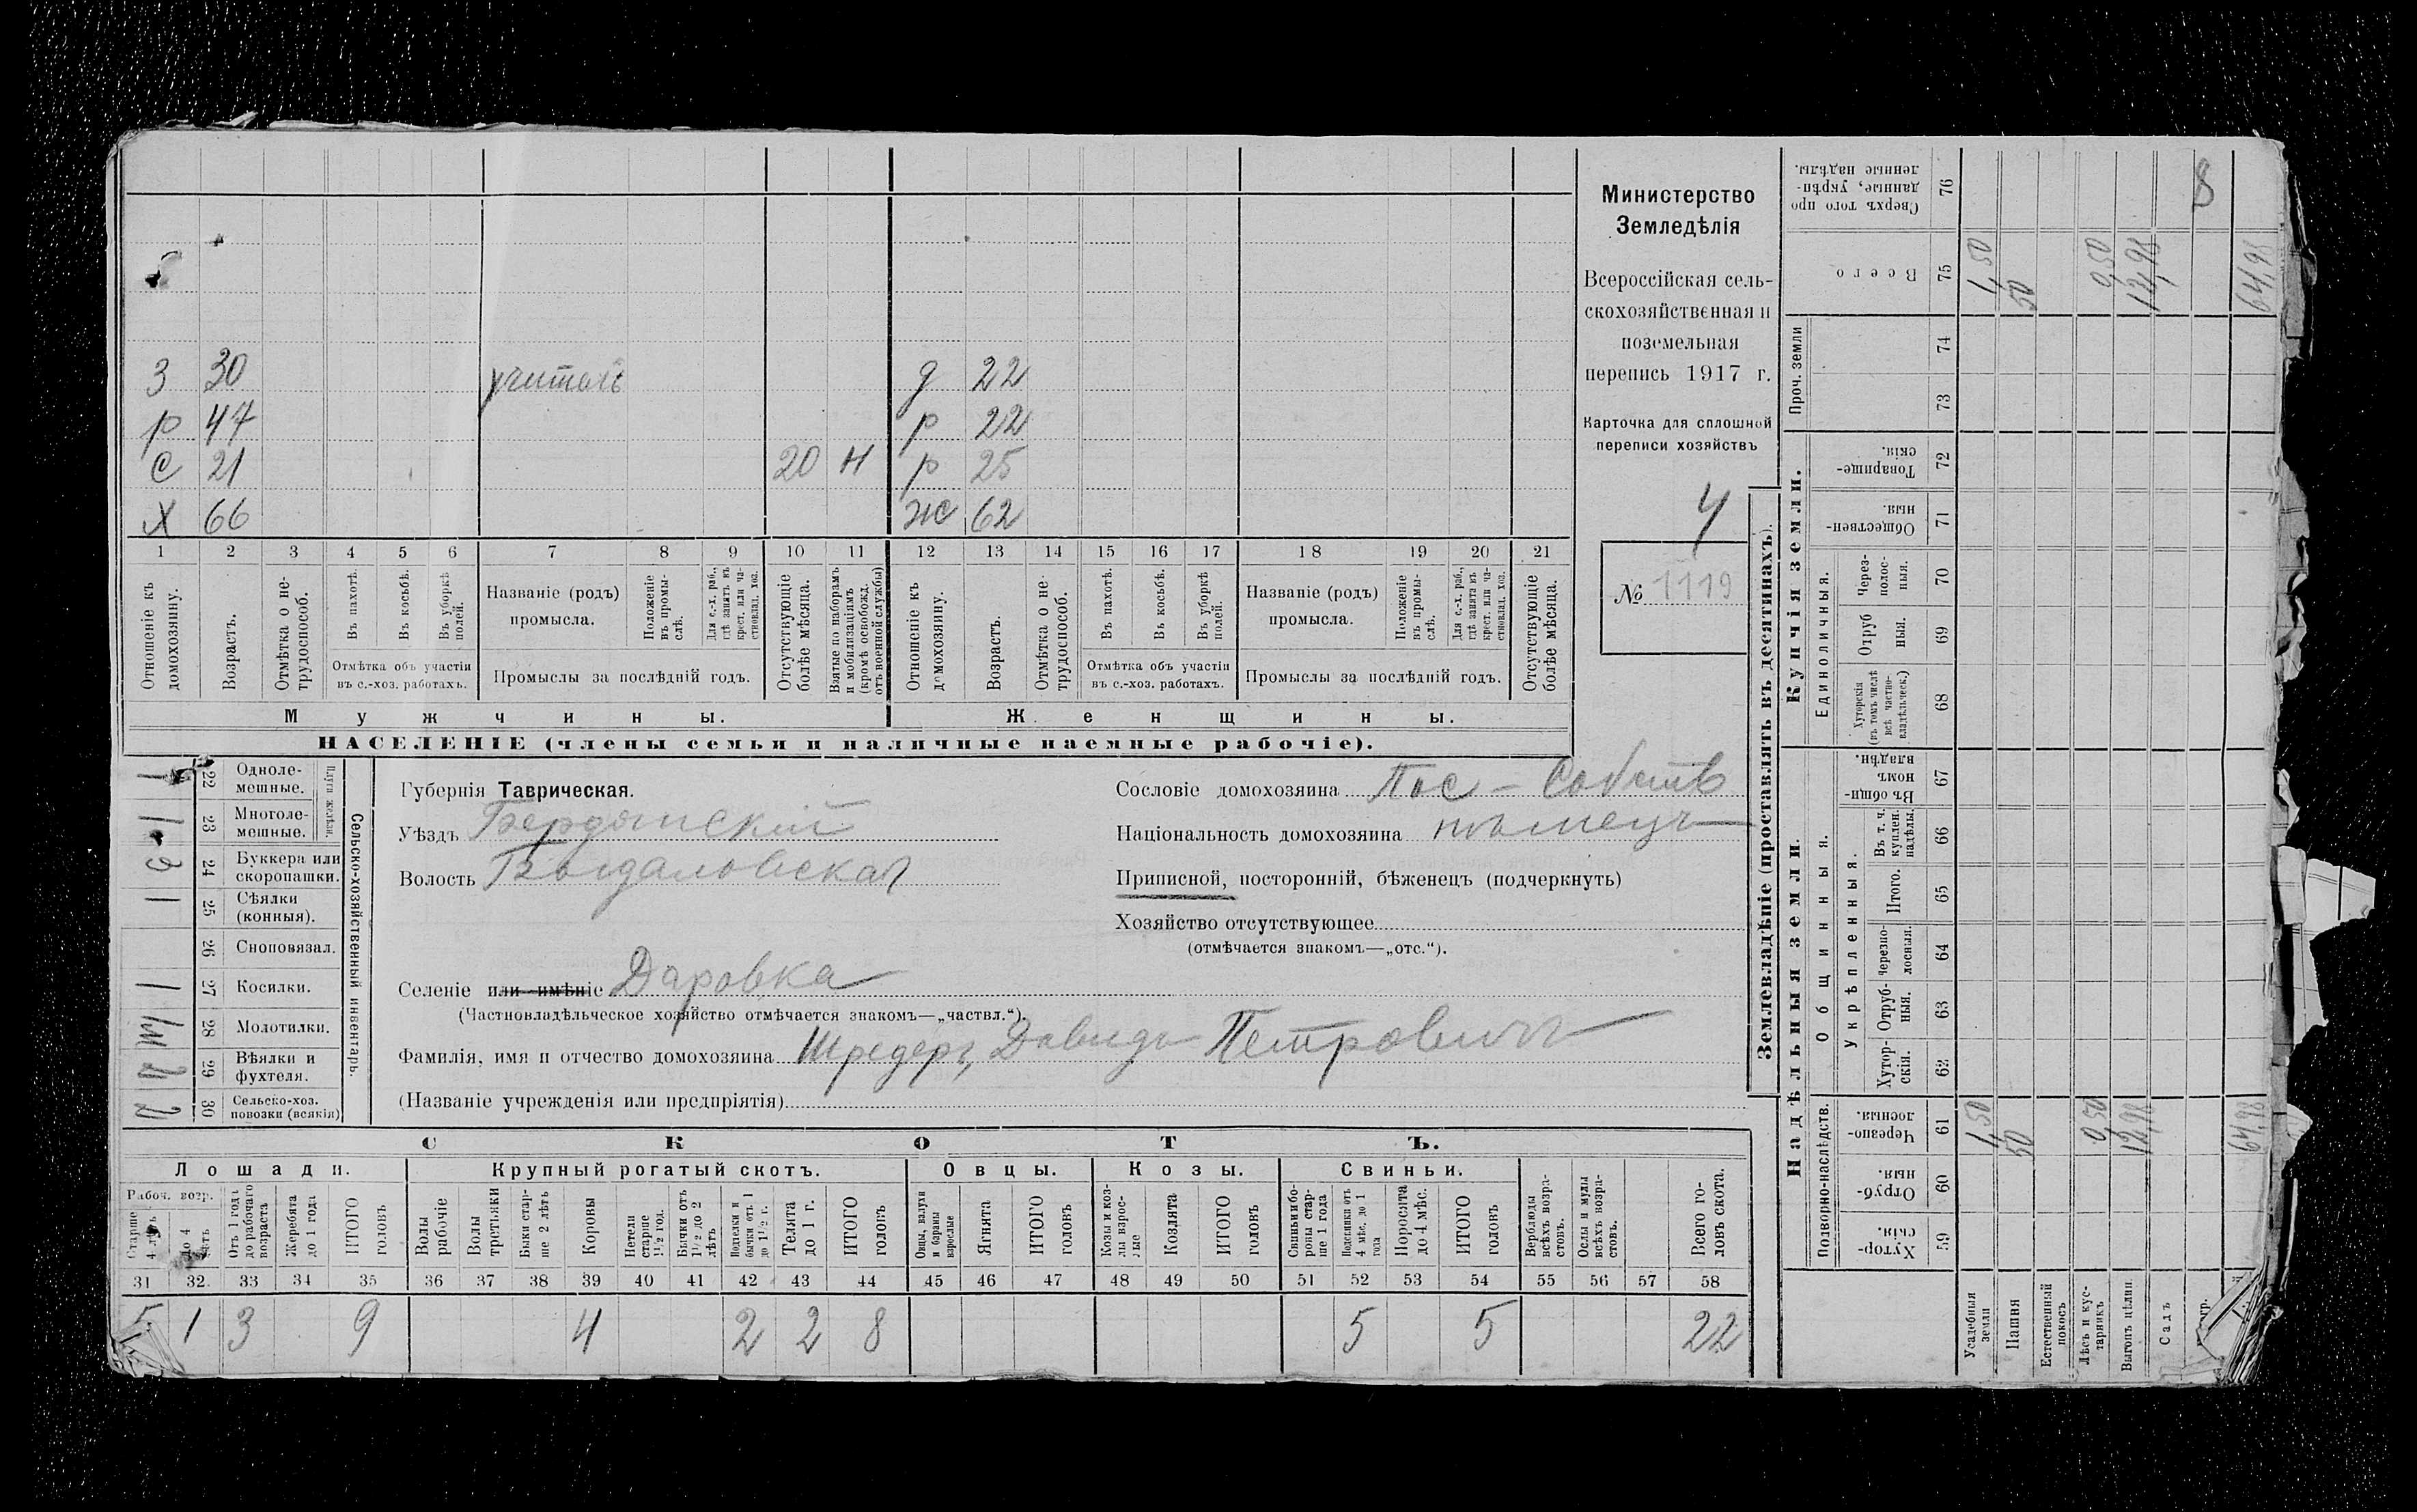 Министерство
Земледѣлія
Всероссійская сель-
скохозяйственная и
поземельная
перепись 1917 г.
Карточка для сплошной
переписи хозяйствъ
4
№ 1119
З 30 учитель д 22
р 47 р 22
С 21 20 Н р 25
Х 66 Ж 62
1 2 3 4 5 6 7 8 9 10 11 12 13 14 15 16 17 18 19 20 21
Отношеніе къ домохозяину.
Возрастъ.
Отмѣтка о не-трудоспособ.
Въ пахотѣ.
Въ косьбѣ.
Въ уборкѣ полей.
Отмѣтка объ участіи
въ с.-хоз. работахъ.
Названіе (родъ)
промысла.
Положеніе въ промы-слѣ.
Для с.-х. раб., гдѣ занятъ въ крест. или ча-стновлад. хоз.
Промыслы за послѣдній годъ.
Отсутствующіе болѣе мѣсяца.
Взятые по наборамъ и мобилизаціямъ (кромѣ освобожд. отъ военной службы)
Отношеніе къ домохозяину.
Возрастъ.
Отмѣтка о не-трудоспособ.
Въ пахотѣ.
Въ косьбѣ.
Въ уборкѣ полей.
Отмѣтка объ участіи
въ с.-хоз. работахъ.
Названіе (родъ)
промысла.
Положеніе въ промы-слѣ.
Для с.-х. раб., гдѣ занята въ крест. или ча-стновлад. хоз.
Промыслы за послѣдній годъ.
Отсутствующіе болѣе мѣсяца.
Мужчины. Женщины.
НАСЕЛЕНІЕ (члены семьи и наличные наемные рабочіе).
Губернія Таврическая.
Уѣздъ Бердянскій
Волость Богдановская
Селеніе или имѣніе Даровка
(Частновладѣльческое хозяйство отмѣчается знакомъ—„частвл.“).
Фамилія, имя и отчество домохозяина Шредеръ, Давидъ Петровичъ
(Названіе учрежденія или предпріятія)
Сословіе домохозяина Пос - Собств
Національность домохозяина нѣмецъ
Приписной, посторонній, бѣженецъ (подчеркнуть)
Хозяйство отсутствующее
(отмѣчается знакомъ—„отс.“).
Сельско-хозяйственный инвентарь.
Плуги желѣзн.
22 Одноле-мешные. 1
23 Многоле-мешные. 1
24 Буккера или скоропашки. 3
25 Сѣялки (конныя). 1
26 Сноповязал.
27 Косилки. 1
28 Молотилки.
29 Вѣялки и фухтеля. 2
30 Сельско-хоз. повозки (всякія) 2
СКОТЪ.
Лошади. Крупный рогатый скотъ. Овцы. Козы. Свиньи.
Рабоч. возр.
Старше 4 лѣтъ
До 4 лѣтъ
Отъ 1 года до рабочаго возраста
Жеребята до 1 года
ИТОГО головъ
Волы рабочіе
Волы третьяки
Быки стар-ше 2 лѣтъ
Коровы
Нетели старше 1½ год.
Бычки отъ 1½ до 2 лѣтъ
Подтелки и бычки отъ 1 до 1½ г.
Телята до 1 г.
ИТОГО головъ
Овцы, валухи и бараны взрослые
Ягнята
ИТОГО головъ
Козы и коз-лы взрос-лые
Козлята
ИТОГО головъ
Свиньи и бо-ровы стар-ше 1 года
Подсвинки отъ 4 мѣс. до 1 года
Поросята до 4 мѣс.
ИТОГО головъ
Верблюды всѣхъ возра-стовъ.
Ослы и мулы всѣхъ возра-стовъ.
Всего го-ловъ скота.
31 32 33 34 35 36 37 38 39 40 41 42 43 44 45 46 47 48 49 50 51 52 53 54 55 56 57 58
5 1 3 9 4 2 2 8 5 5 22
Землевладѣніе (проставлять въ десятинахъ).
Надѣльныя земли. Купчія земли. Проч. земли
Подворно-наслѣдств. Общинныя. Единоличныя.
Укрѣпленныя.
Хутор-скія. 59
Отруб-ныя. 60
Черезпо-лосныя. 61
Хутор-скія. 62
Отруб-ныя. 63
Черезпо-лосныя. 64
Итого. 65
Въ т. ч. куплен. надѣлы. 66
Въ общи-номъ владѣн. 67
Хуторскія (въ томъ числѣ всѣ частно-владѣльческ.) 68
Отруб ныя. 69
Через-полос-ныя. 70
Обществен-ныя. 71
Товарище-скія. 72
73
74
Всего 75
Сверхъ того про данные, укрѣп-ленные надѣлы. 76
8
Усадебныя земли 1,50 1,50
Пашня 50 50
Естественный покосъ
Лѣсъ и кус-тарникъ 0,50 0,50
Выгонъ цѣлин 12,98 12,98
Садъ
64,98 64,98